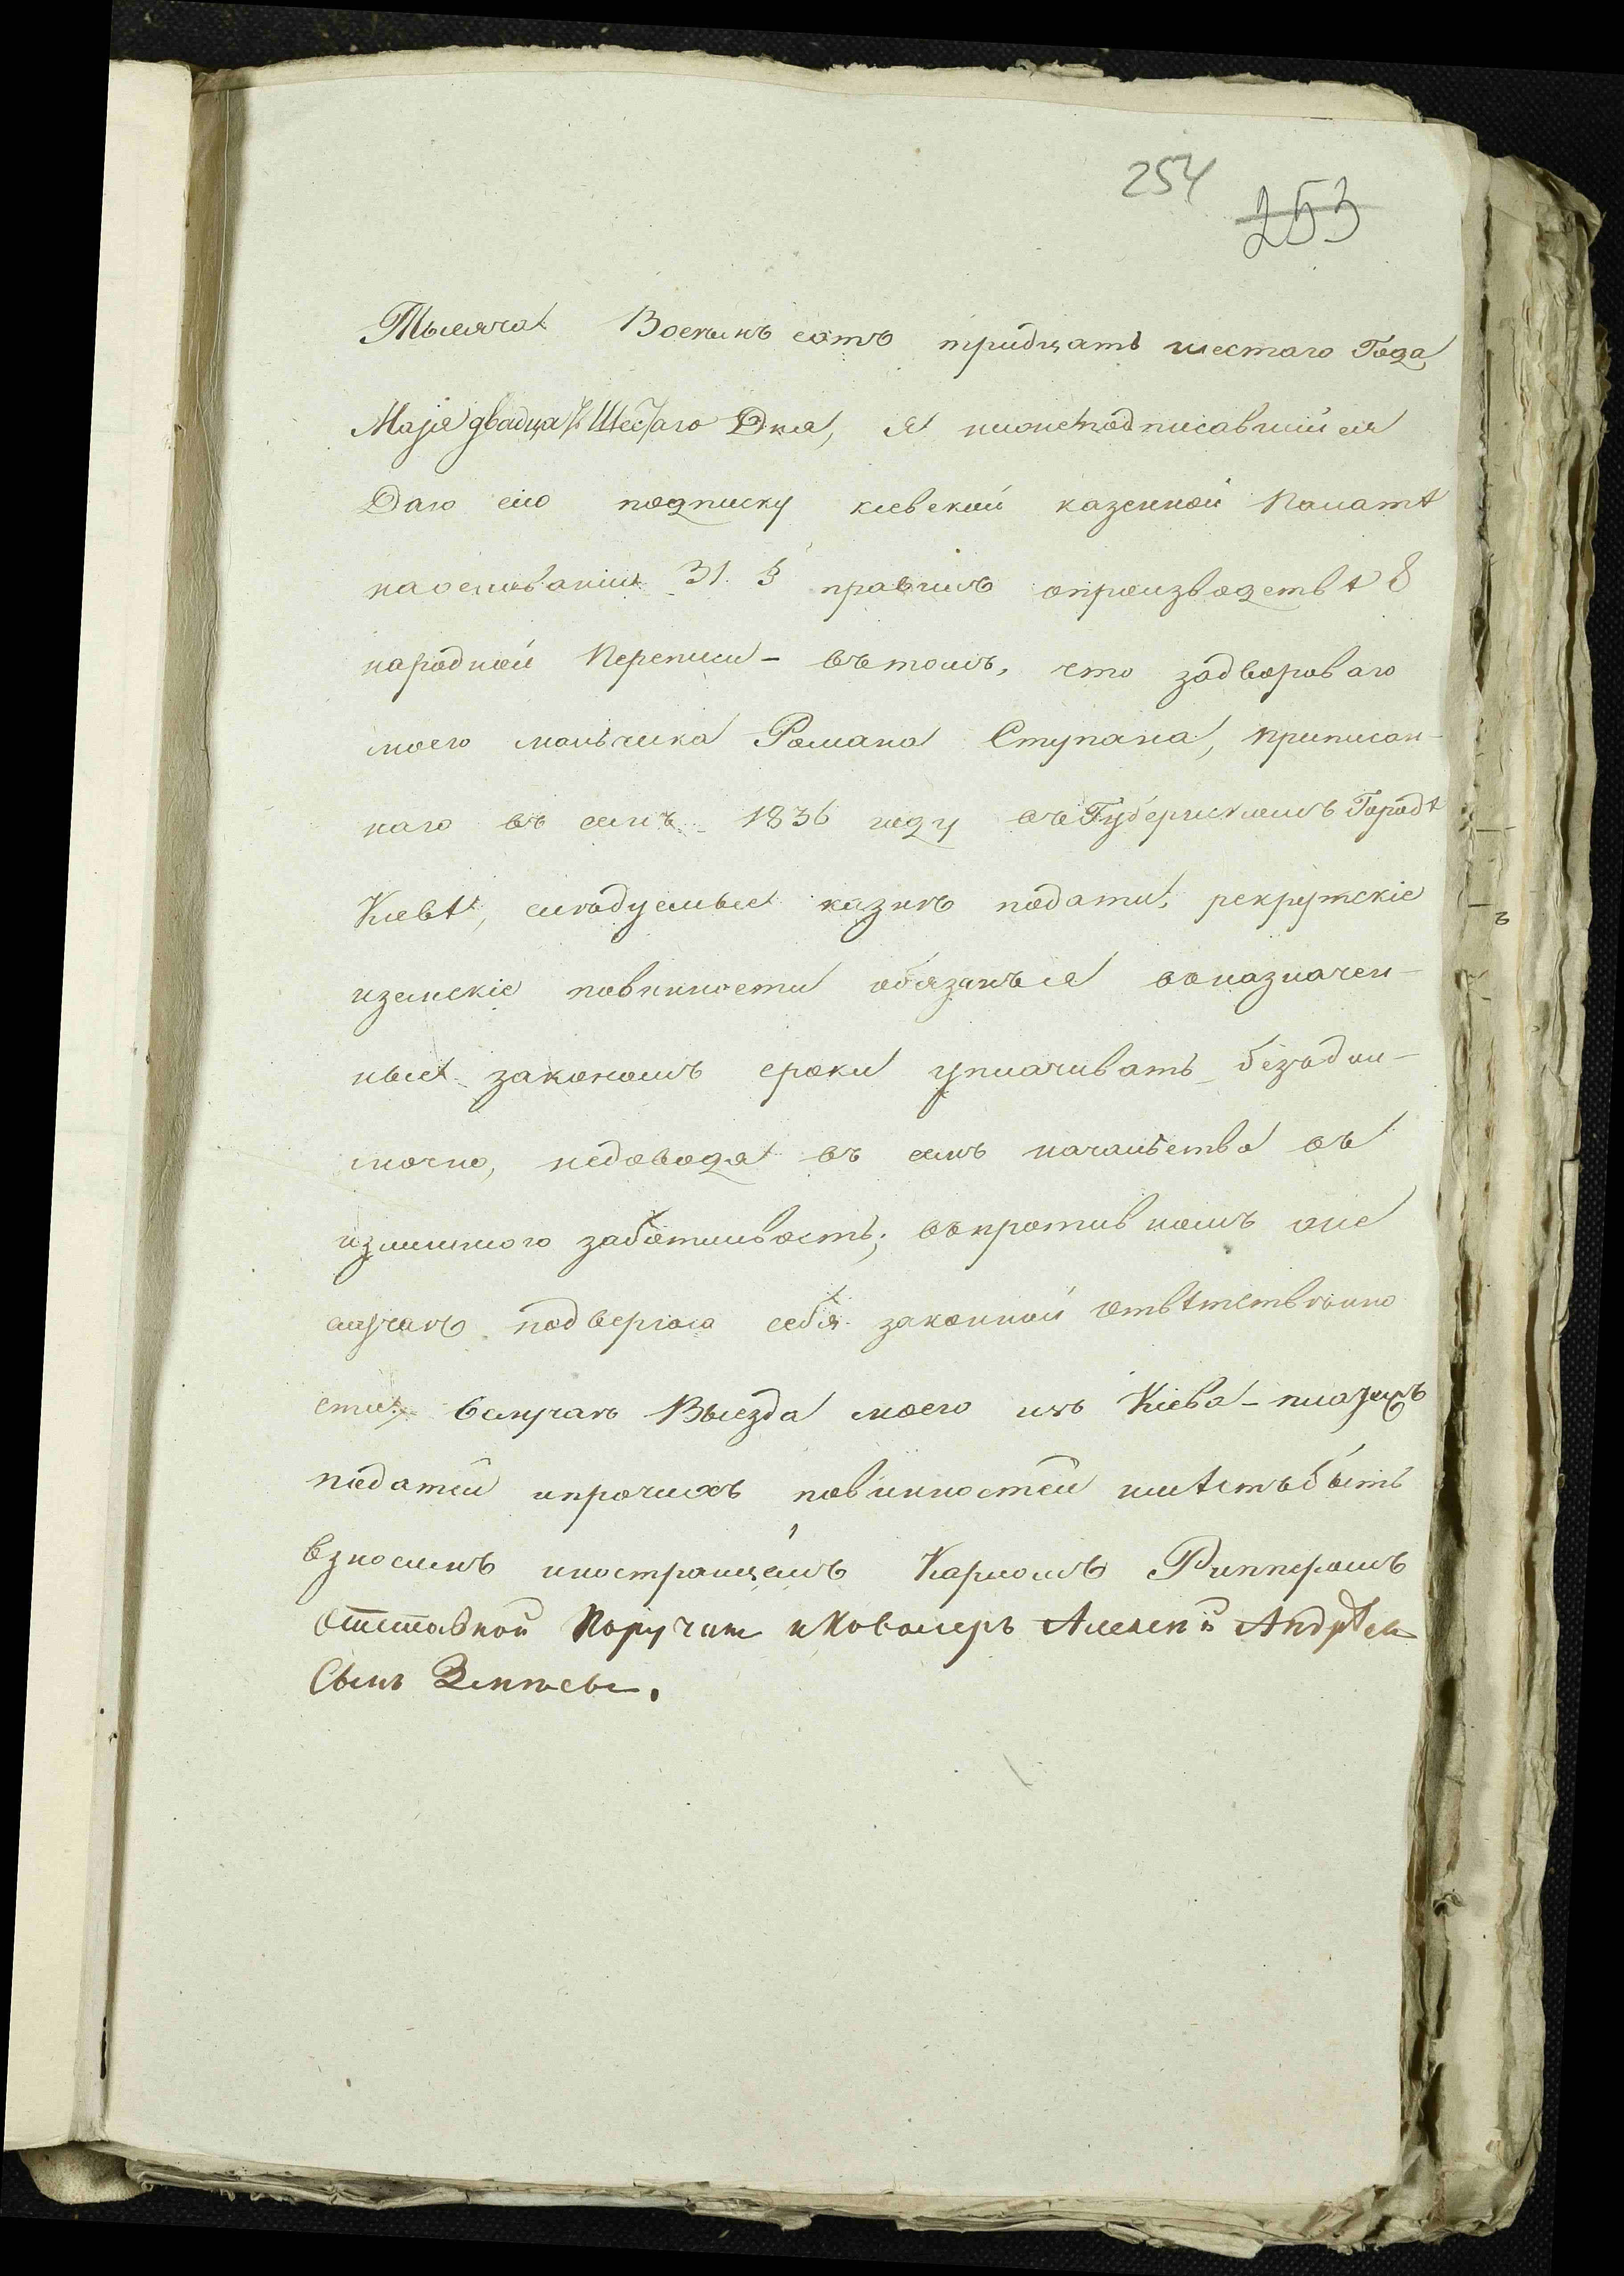 254
253
Тысяча Восемь сотъ тридцать шестаго Года
Маія двадцать Шестаго Дня, я нижеподписавшійся
Даю сію подписку кіевской казенной Палатѣ
наоснованіи 31 § правилъ опроизводствѣ 8
народной Переписи - вътомъ, что задвороваго
моего мальчика Романа Ступака, приписан-
наго въ семъ 1836 году въ Губернскомъ Городѣ
Кіевѣ, слѣдуемые казнѣ подати, рекрутскіе
иземскіе повинности обязанъся вовназначен-
ные закономъ сроки уплачивать бездои-
мочно, недоводя въ семъ начальства въ
излишнюю заботливость; въпротивномъ же
случаѣ подвергаю себя законной отвѣтственно
сти; Вслучаѣ Выезда моего изъ Кіева - платежъ
податей ипрочихъ повинностей имѣетъбыть
взносимъ иностранцемъ Карломъ Риттеромъ
Отставной Поручик иКавалеръ Алексѣй Андрѣев
Сынъ